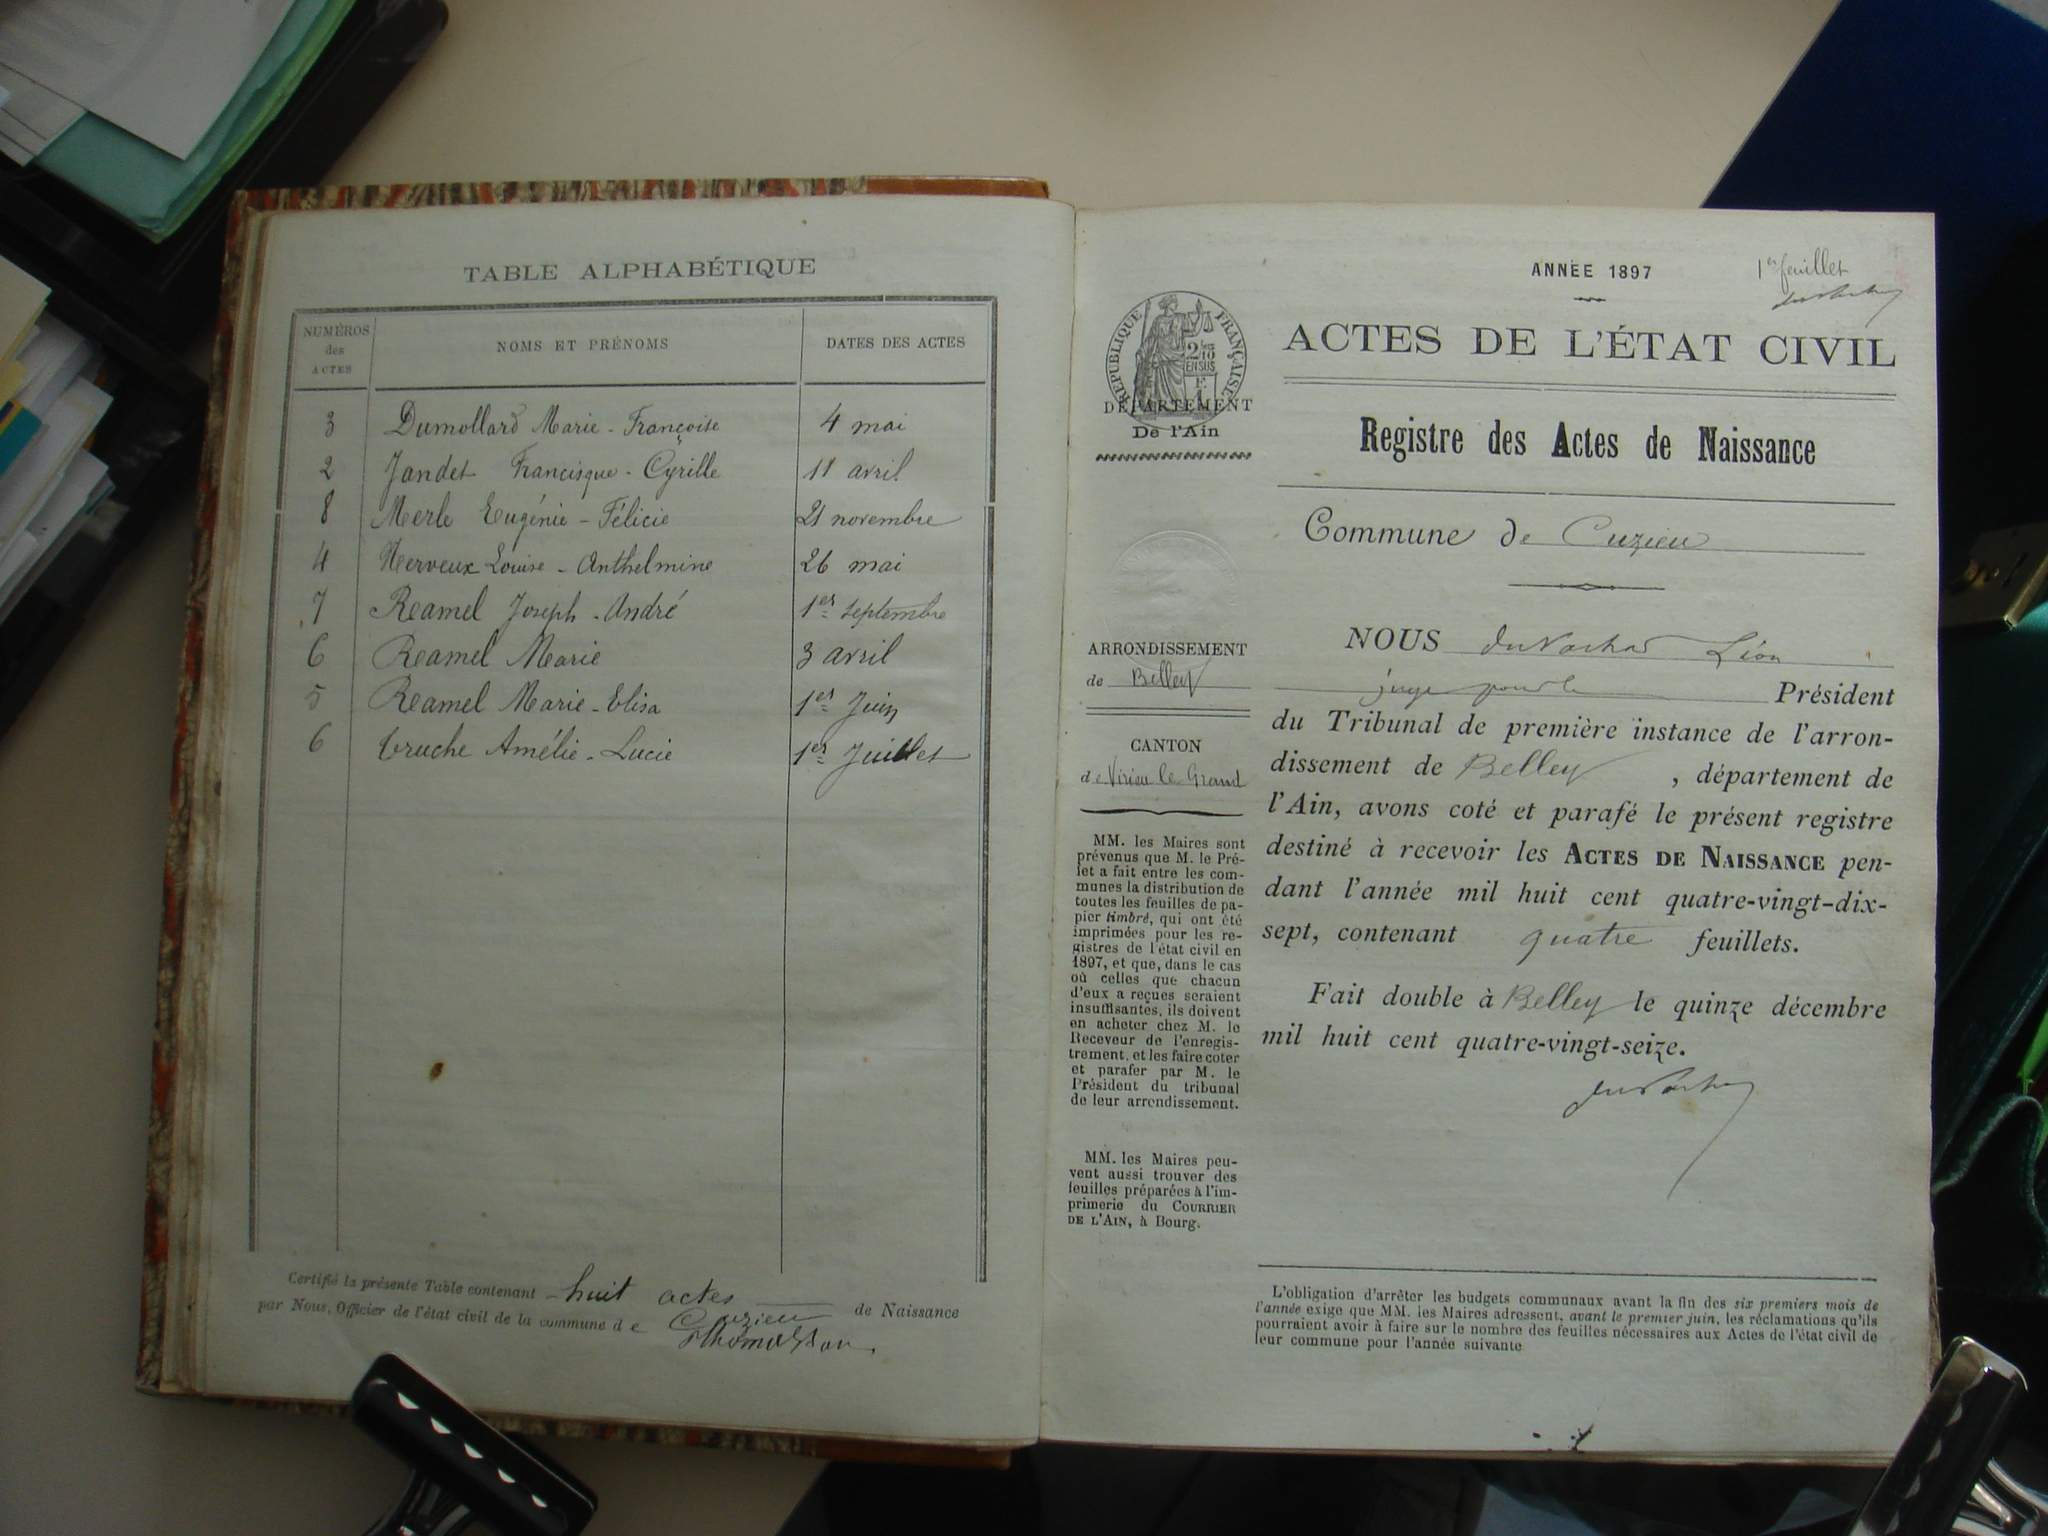 TABLE ALPHABÉTIQUE
NUMÉROS des ACTES
NOMS ET PRÉNOMS
DATES DES ACTES
3 Dumollard Marie-Françoise 4 mai
2 Jandet Francisque-Cyrille 11 avril
8 Merle Eugénie-Félicie 21 novembre
4 Nerveux Louise-Anthelmine 26 mai
7 Reamel Joseph-André 1er septembre
6 Reamel Marie 3 avril
5 Reamel Marie-Elisa 1er Juin
6 Truche Amélie-Lucie 1er Juillet
Certifié la présente Table contenant huit actes de Naissance
par Nous, Officier de l'état civil de la commune de Cuzieu
ANNÉE 1897
1er feuillet
RÉPUBLIQUE FRANÇAISE
2/10 EN SUS
ACTES DE L'ÉTAT CIVIL
DÉPARTEMENT
De l'Ain
Registre des Actes de Naissance
Commune de Cuzieu
ARRONDISSEMENT
de Belley
CANTON
de Virieu le Grand
MM. les Maires sont
prévenus que M. le Pré-
fet a fait entre les com-
munes la distribution de
toutes les feuilles de pa-
pier timbré, qui ont été
imprimées pour les re-
gistres de l'état civil en
1897, et que, dans le cas
où celles que chacun
d'eux a reçues seraient
insuffisantes, ils doivent
en acheter chez M. le
Receveur de l'enregis-
trement, et les faire coter
et parafer par M. le
Président du tribunal
de leur arrondissement.
MM. les Maires peu-
vent aussi trouver des
feuilles préparées à l'im-
primerie du COURRIER
DE L'AIN, à Bourg.
NOUS Léon
juge pour le Président
du Tribunal de première instance de l'arron-
dissement de Belley, département de
l'Ain, avons coté et parafé le présent registre
destiné à recevoir les ACTES DE NAISSANCE pen-
dant l'année mil huit cent quatre-vingt-dix-
sept, contenant quatre feuillets.
Fait double à Belley le quinze décembre
mil huit cent quatre-vingt-seize.
L'obligation d'arrêter les budgets communaux avant la fin des six premiers mois de
l'année exige que MM. les Maires adressent, avant le premier juin, les réclamations qu'ils
pourraient avoir à faire sur le nombre des feuilles nécessaires aux Actes de l'état civil de
leur commune pour l'année suivante